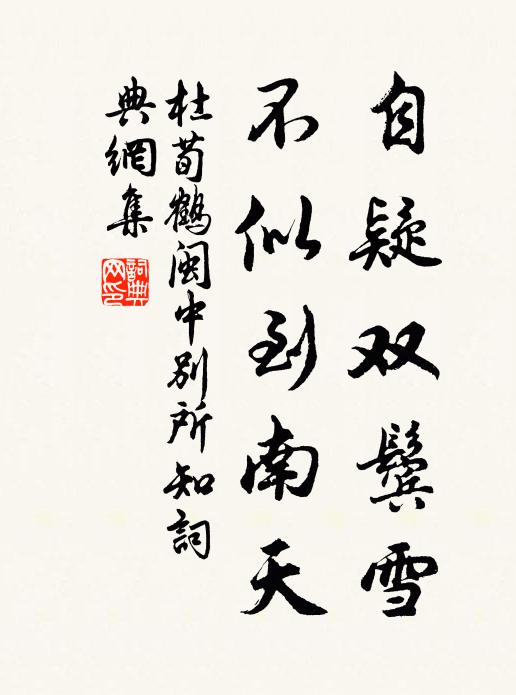 自疑双鬓雪
不似到南天
杜荀鶴閩中別所知詞
典網集
詞典网印